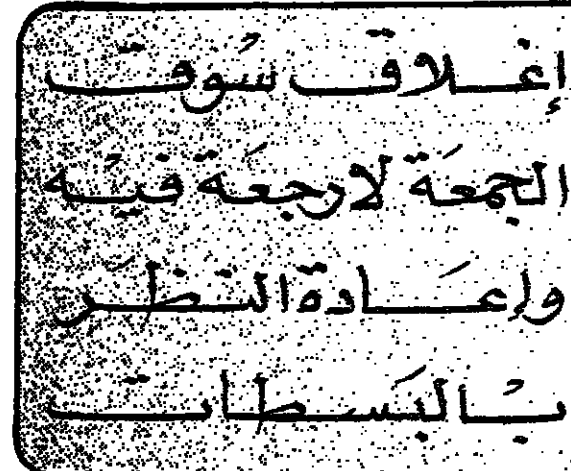 إغلاق سوق
الجمعة لا رجعة فيه
وإعادة النظر
بالبسطات